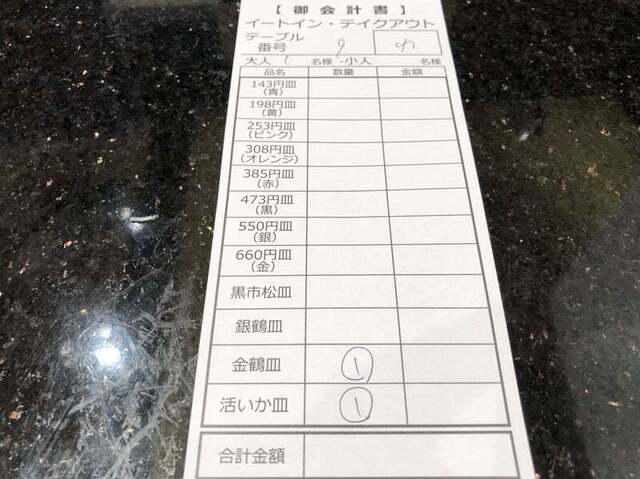 【 御 会 計 書 】
イートイン・テイクアウト
テーブル
番号 9
大人 1 名様・小人 名様
品名 数量 金額
143円皿
(青)
198円皿
(黄)
253円皿
(ピンク)
308円皿
(オレンジ)
385円皿
(赤)
473円皿
(黒)
550円皿
(銀)
660円皿
(金)
黒市松皿
銀鶴皿
金鶴皿 ①
活いか皿 ①
合計金額